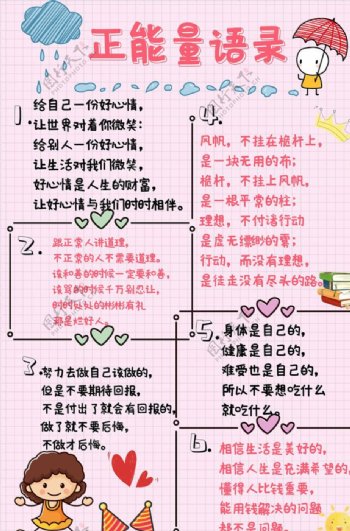 正能量语录
1.
给自己一份好心情，
让世界对着你微笑；
给别人一份好心情，
让生活对我们微笑，
好心情是人生的财富，
让好心情与我们时时相伴。
2.
跟正常人讲道理，
不正常的人不需要道理。
该和善的时候一定要和善，
该骂的时候千万别忍让，
时时处处的彬彬有礼
那是烂好人。
3.
努力去做自己该做的，
但是不要期待回报，
不是付出了就会有回报的，
做了就不要后悔，
不做才后悔。
4.
风帆，不挂在桅杆上，
是一块无用的布；
桅杆，不挂上风帆，
是一根平常的柱；
理想，不付诸行动
是虚无缥缈的雾；
行动，而没有理想，
是徒走没有尽头的路。
5.
身体是自己的，
健康是自己的，
难受也是自己的，
所以不要想吃什么
就吃什么。
6.
相信生活是美好的，
相信人生是充满希望的
懂得人比钱重要，
能用钱解决的问题
都不是问题